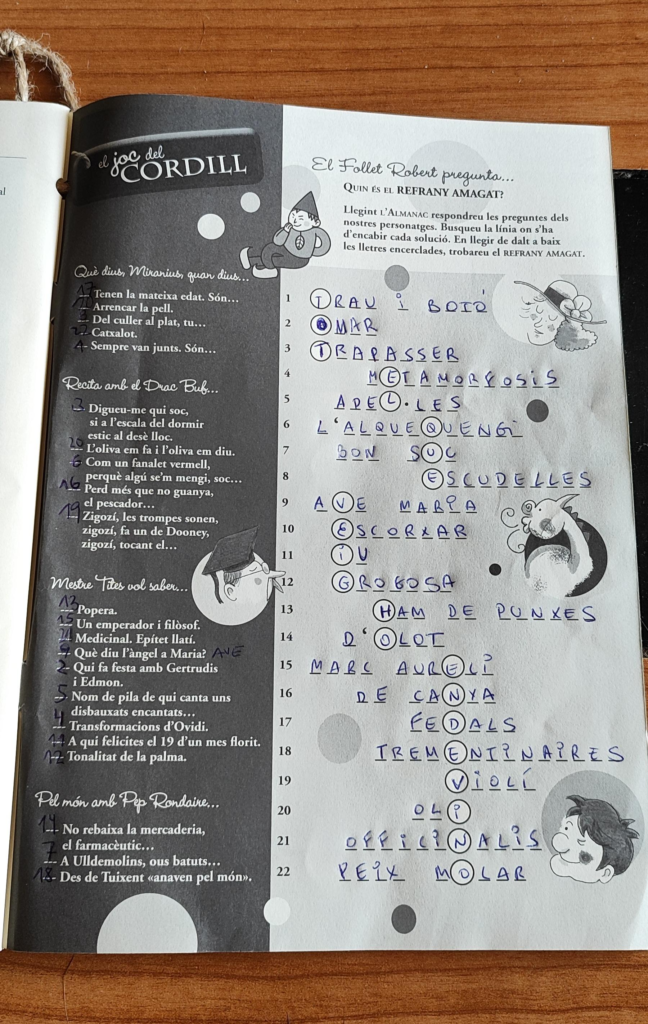 el joc del
CORDILL
El Follet Robert pregunta...
QUIN ÉS EL REFRANY AMAGAT?
Llegint l'Almanac respondreu les preguntes dels
nostres personatges. Busqueu la línia on s'ha
d'encabir cada solució. En llegir de dalt a baix
les lletres encerclades, trobareu el REFRANY AMAGAT.
Què dius, Miranius, quan dius...
Tenen la mateixa edat. Són...
Arrencar la pell.
Del culler al plat, tu...
22 Catxalot.
Sempre van junts. Són...
Recita amb el Drac Buf...
3 Digueu-me qui soc,
si a l'escala del dormir
estic al desè lloc.
20 L'oliva em fa i l'oliva em diu.
6 Com un fanalet vermell,
perquè algú se'm mengi, soc...
16 Perd més que no guanya,
el pescador...
19 Zigozí, les trompes sonen,
zigozí, fa un de Dooney,
zigozí, tocant el...
Mestre Tites vol saber...
Popera.
15 Un emperador i filòsof.
21 Medicinal. Epítet llatí.
9 Què diu l'àngel a Maria? AVE
2 Qui fa festa amb Gertrudis
i Edmon.
5 Nom de pila de qui canta uns
disbauxats encantats...
4 Transformacions d'Ovidi.
A qui felicites el 19 d'un mes florit.
12 Tonalitat de la palma.
Pel món amb Pep Rondaire...
14 No rebaixa la mercaderia,
el farmacèutic...
7 A Ulldemolins, ous batuts...
18 Des de Tuixent «anaven pel món».
1 TRAU I BOTÓ
2 OMAR
3 TRAPASSER
4 METAMORFOSIS
5 ADEL·LES
6 L'ALQUEQUENGI
7 BON SUC
8 ESCUDELLES
9 AVE MARIA
10 ESCORXAR
11 IU
12 GROGOSA
13 HAM DE PUNXES
14 D'OLOT
15 MARC AURELI
16 DE CANYA
17 FEDALS
18 TREMENTINAIRES
19 VIOLÍ
20 OLI
21 OFFICINALIS
22 PEIX MOLAR